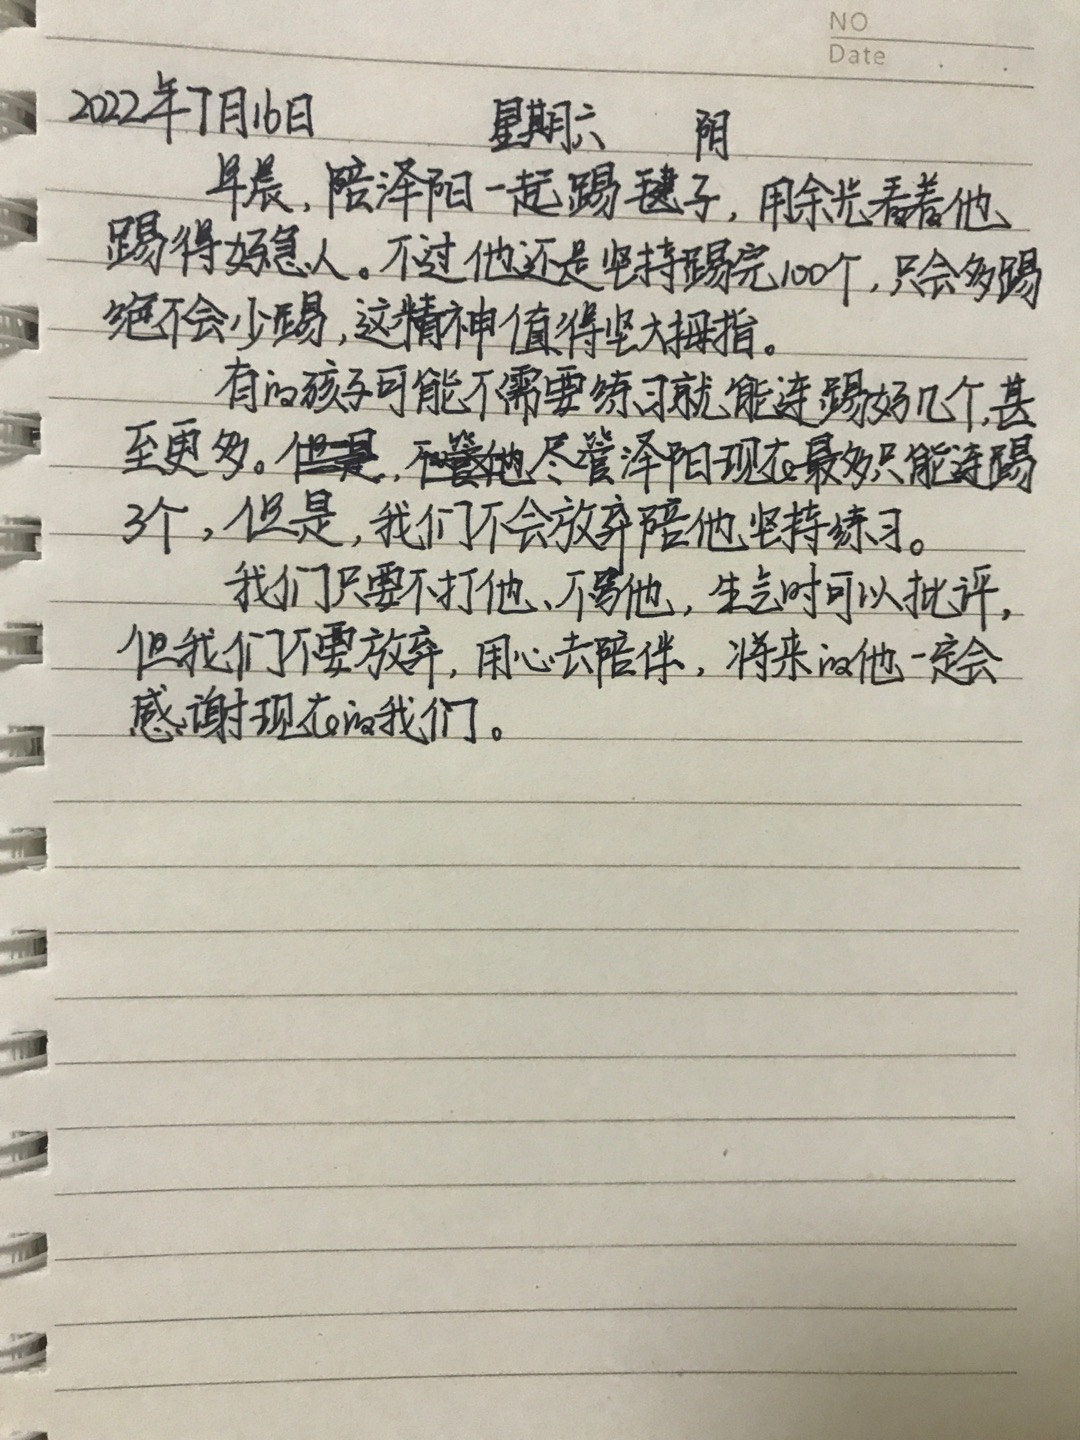 NO
Date
2022年7月16日 星期六 阴
早晨，陪泽阳一起踢毽子，用余光看着他
踢得好急人。不过他还是坚持踢完100个，只会多踢
绝不会少踢，这精神值得坚大拇指。
有的孩子可能不需要练习就能连踢好几个，甚
至更多。但是，不管他尽管泽阳现在最多只能连踢
3个，但是，我们不会放弃陪他坚持练习。
我们只要不打他、不骂他，生气时可以批评，
但我们不要放弃，用心去陪伴，将来的他一定会
感谢现在的我们。